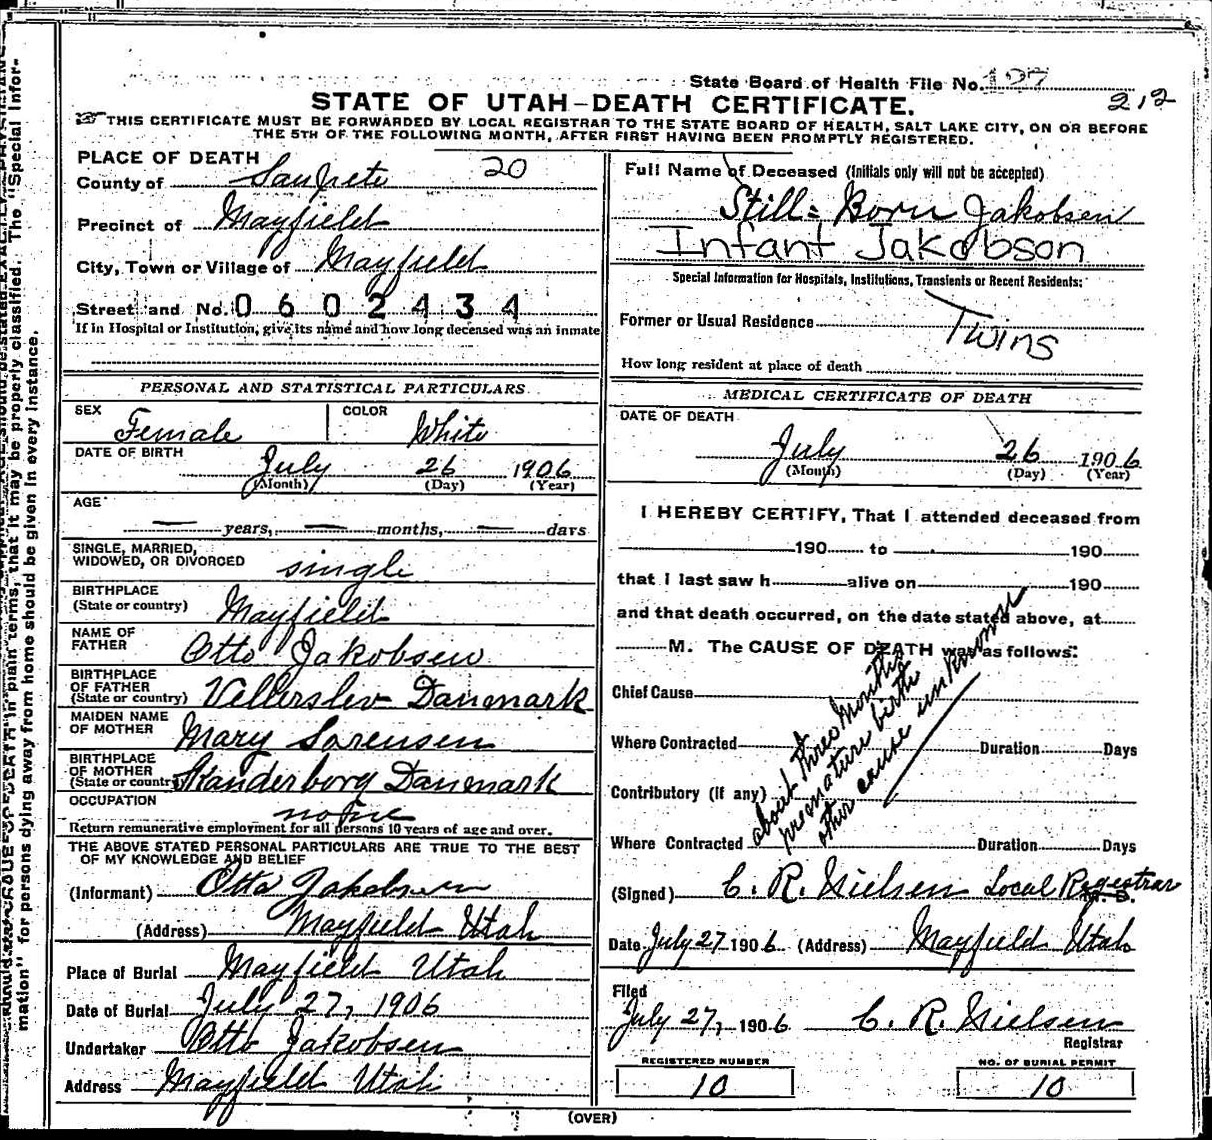 State Board of Health File No. 127
212
STATE OF UTAH—DEATH CERTIFICATE.
THIS CERTIFICATE MUST BE FORWARDED BY LOCAL REGISTRAR TO THE STATE BOARD OF HEALTH, SALT LAKE CITY, ON OR BEFORE
THE 5TH OF THE FOLLOWING MONTH, AFTER FIRST HAVING BEEN PROMPTLY REGISTERED.
PLACE OF DEATH
County of Sanpete 20
Precinct of Mayfield
City, Town or Village of Mayfield
Street and No. 0602434
If in Hospital or Institution, give its name and how long deceased was an inmate
PERSONAL AND STATISTICAL PARTICULARS
SEX Female COLOR White
DATE OF BIRTH July 26 1906
(Month) (Day) (Year)
AGE
— years, — months, — days
SINGLE, MARRIED,
WIDOWED, OR DIVORCED single
BIRTHPLACE
(State or country) Mayfield
NAME OF
FATHER Otto Jakobsen
BIRTHPLACE
OF FATHER
(State or country) Vellerslev Danmark
MAIDEN NAME
OF MOTHER Mary Sorensen
BIRTHPLACE
OF MOTHER
(State or country) Skanderborg Danmark
OCCUPATION none
Return remunerative employment for all persons 10 years of age and over.
THE ABOVE STATED PERSONAL PARTICULARS ARE TRUE TO THE BEST
OF MY KNOWLEDGE AND BELIEF
(Informant) Otto Jakobsen
(Address) Mayfield Utah
Place of Burial Mayfield Utah
Date of Burial July 27, 1906
Undertaker Otto Jakobsen
Address Mayfield Utah
Full Name of Deceased (Initials only will not be accepted)
Still=Born Jakobsen
Infant Jakobson
Special Information for Hospitals, Institutions, Transients or Recent Residents:
Former or Usual Residence
Twins
How long resident at place of death
MEDICAL CERTIFICATE OF DEATH
DATE OF DEATH
July 26 1906
(Month) (Day) (Year)
I HEREBY CERTIFY, That I attended deceased from
190 to 190
that I last saw h alive on 190
and that death occurred, on the date stated above, at
M. The CAUSE OF DEATH was as follows:
Chief Cause
Where Contracted Duration Days
Contributory (if any)
Where Contracted Duration Days
about three months
premature birth
other cause unknown
(Signed) C. R. Nielsen Local Registrar M. D.
Date July 27 1906 (Address) Mayfield Utah
Filed
July 27, 1906 C. R. Nielsen
Registrar
REGISTERED NUMBER
10
NO. OF BURIAL PERMIT
10
(OVER)
mation" for persons dying away from home should be given in every instance.
in plain terms, that it may be properly classified. The "Special Infor-